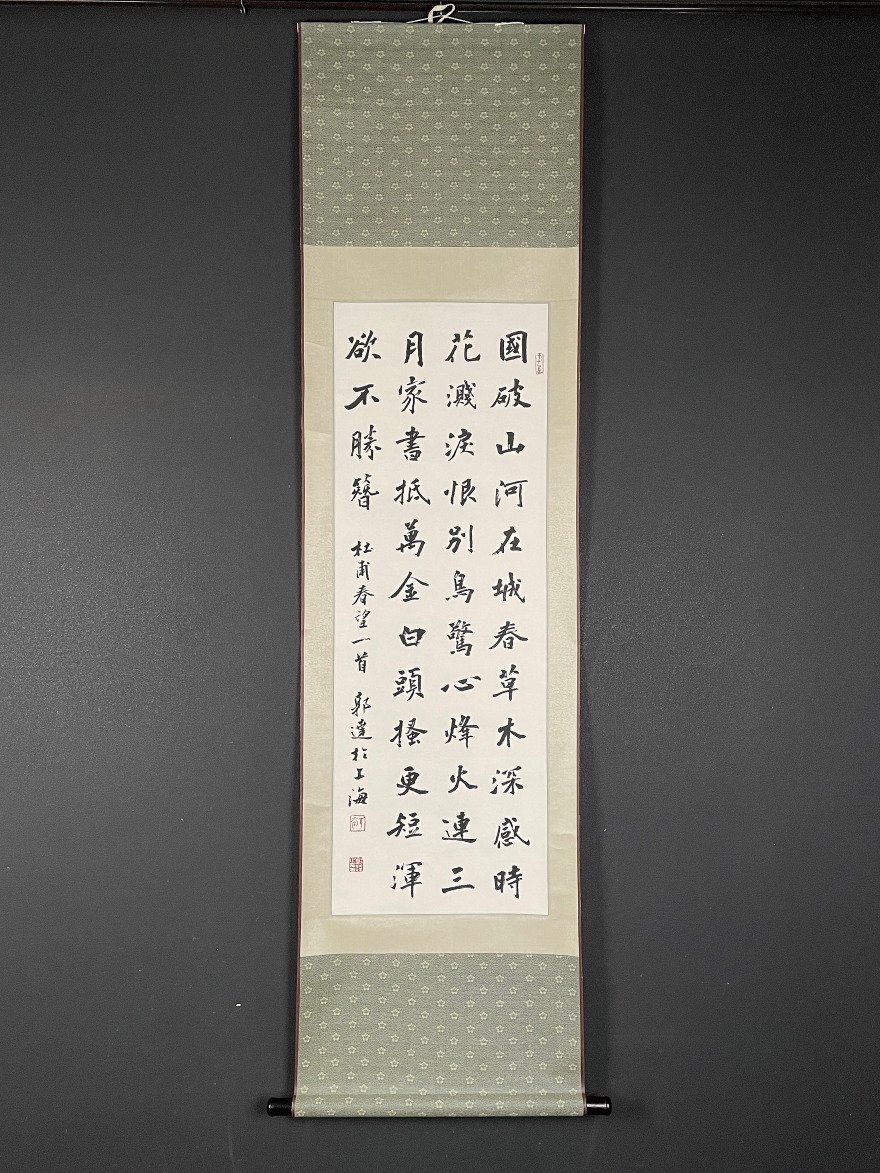 國破山河在城春草木深感時
花濺淚恨別鳥驚心烽火連三
月家書抵萬金白頭搔更短渾
欲不勝簪
杜甫春望一首 郭達於上海